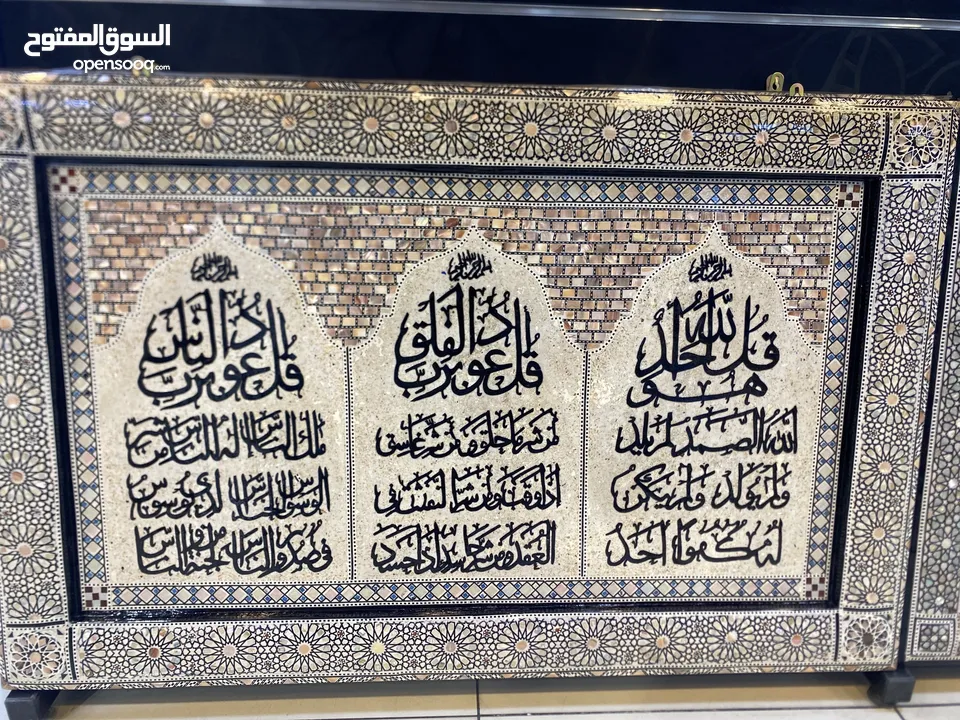 السوق المفتوح
opensooq.com
بسم الله الرحمن الرحيم
قل هو الله احد
الله الصمد لم يلد
ولم يولد ولم يكن
له كفوا احد
بسم الله الرحمن الرحيم
قل اعوذ برب الفلق
من شر ما خلق ومن شر غاسق
اذا وقب ومن شر النفثت في
العقد ومن شر حاسد اذا حسد
بسم الله الرحمن الرحيم
قل اعوذ برب الناس
ملك الناس اله الناس من شر
الوسواس الخناس الذي يوسوس
في صدور الناس من الجنة والناس